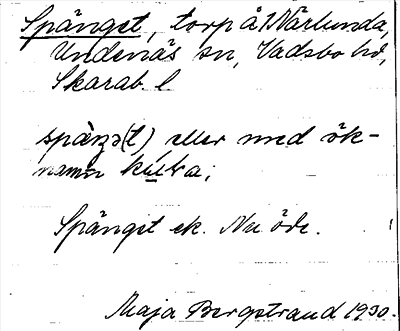 Spänget, torp å Närlunda,
Undenäs sn, Vadsbo hd,
Skarab. l
spàŋə(t), eller med ök-
namn kuka;
Spänget ek. Nu öde.
Maja Bergstrand 1930.